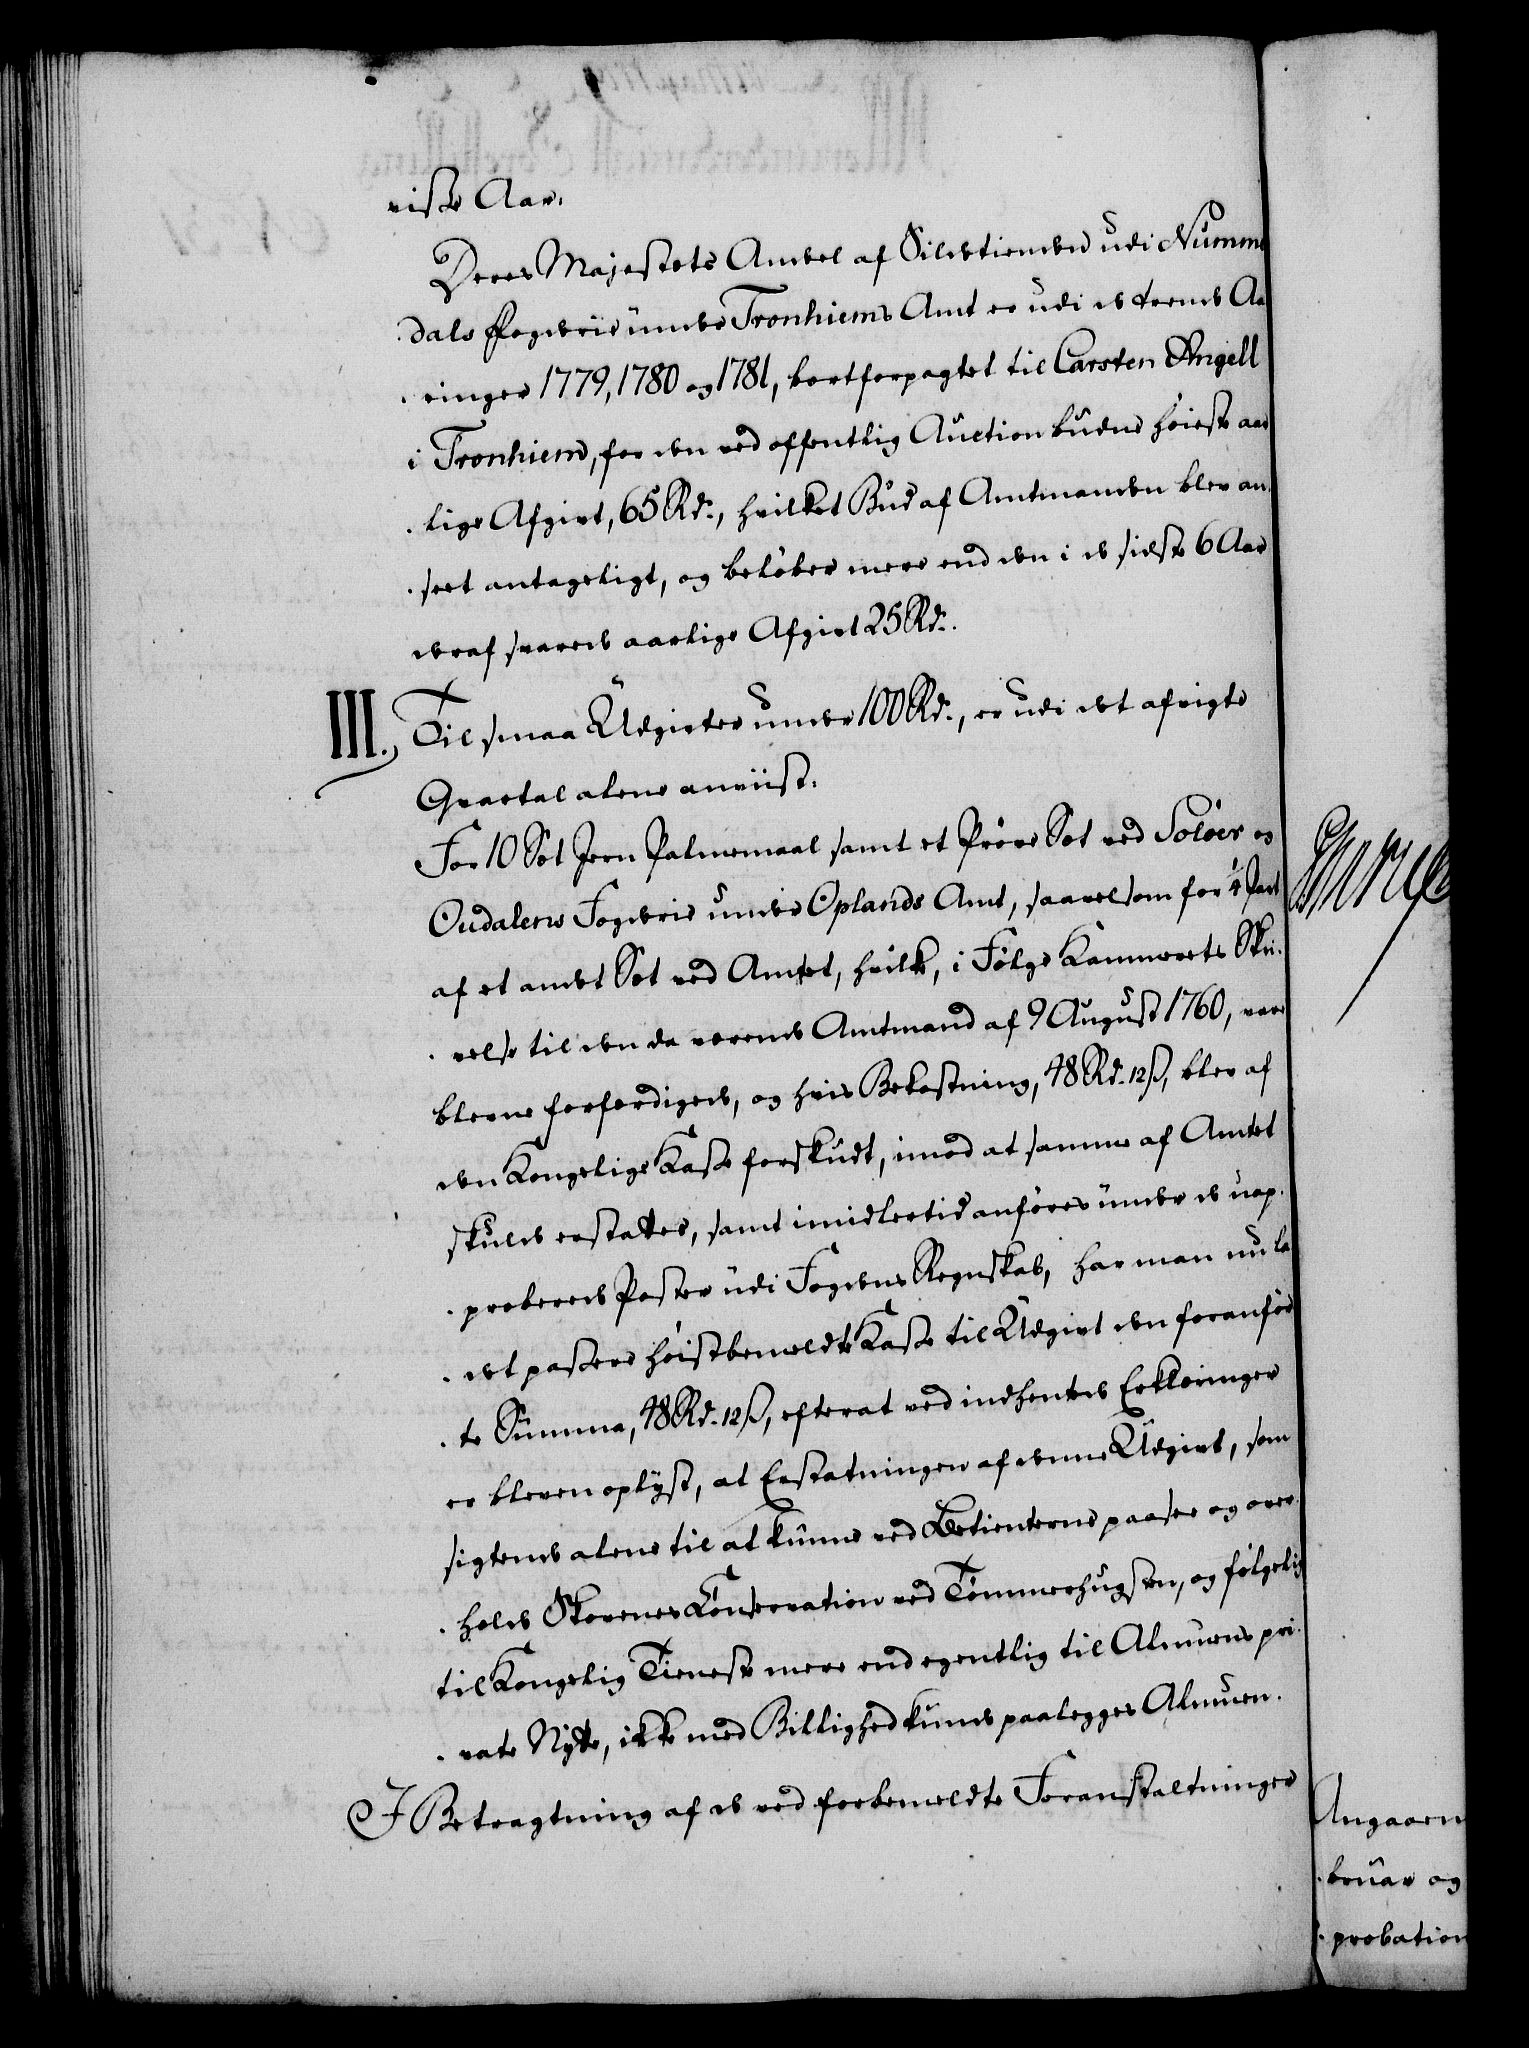 visse Aar.
Deres Majestets Andel af Sildetienden udi Numme
dals Fogderie under Tronhiems Amt er udi de trende Aa
ringer 1779, 1780 og 1781, bortforpagtet til Carsten Angell
i Tronhiem, for den ved offentlig Auction budne høieste aar
lige Afgivt, 65 Rd., hvilket Bud af Amtmanden blev an
seet antageligt, og beløber mere end den i de sidste 6 Aar
deraf svarede aarlige Afgivt 25 Rd.
III. Til smaa Udgivter under 100 Rd., er udi det afvigte
Qvartal alene anviist.
For 10 Set Jern Palmemaal samt et Prøve Set ved Soløer og
Oudalens Fogderie under Oplands Amt, saavelsom for 1/4 Part
af et andet Set ved Amtet, hvilke, i Følge Kammerets Skri-
velse til den da værende Amtmand af 9 August 1760, vare
blevne forfærdigede, og hvis Bekostning, 48 Rd. 12 ß, blev af
den Kongelige Kasse forskudt, imod at samme af Amtet
skulde erstattes, samt imidlertid anføres under de uap-
proberede Poster udi Fogdens Regnskab, har man nu la
det passere høistbemeldte Kasse til Udgivt den foranfør
te Summa, 48 Rd. 12 ß, efterat ved indhentede Erklæringer
er bleven oplyst, at Erstatningen af denne Udgivt, som
sigtende alene til at kunne ved Betienterne paasee og over
holde Skovenes Conservation ved Tømmerhugsten, og følgelig
til Kongelig Tieneste mere end egentlig til Almuens pri-
vate Nytte, ikke med Billighed kunde paalegges Almuen.
I Betragtning af de ved forbemeldte Foranstaltninger
Angaaen
bruar og
probation